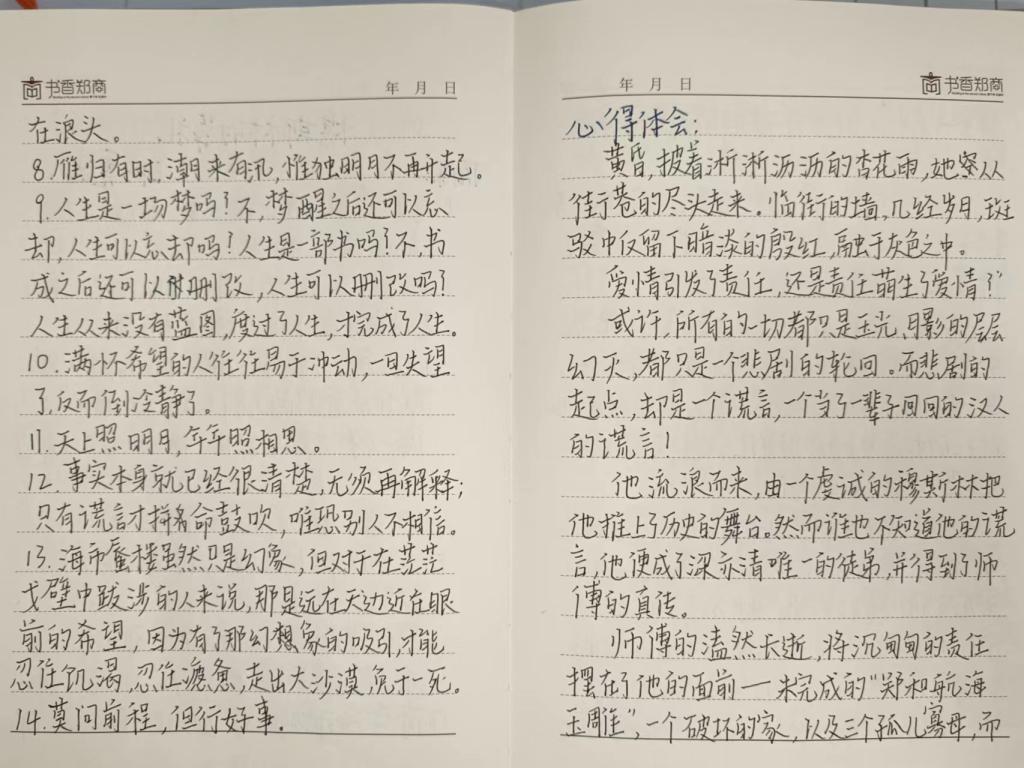 书香郑商
年 月 日
在浪头。
8.雁归有时,潮来有汛,惟独明月不再升起。
9.人生是一场梦吗?不,梦醒之后还可以忘
却,人生可以忘却吗?人生是一部书吗?不,书
成之后还可以删改,人生可以删改吗?
人生从来没有蓝图,度过了人生,才完成了人生。
10.满怀希望的人往往易于冲动,一旦失望
了,反而倒冷静了。
11.天上照明月,年年照相思。
12.事实本身就已经很清楚,无须再解释;
只有谎言才拼命鼓吹,唯恐别人不相信。
13.海市蜃楼虽然只是幻象,但对于在茫茫
戈壁中跋涉的人来说,那是远在天边近在眼
前的希望,因为有了那幻想象的吸引,才能
忍住饥渴,忍住疲惫,走出大沙漠,免于一死。
14.莫问前程,但行好事.
年 月 日
书香郑商
心得体会:
黄昏,披着淅淅沥沥的杏花雨,她察从
街巷的尽头走来.临街的墙,几经岁月,斑
驳中仅留下暗淡的殷红,融于灰色之中。
爱情引发了责任,还是责任萌生了爱情?
或许,所有的一切都只是玉光、月影的层层
幻灭,都只是一个悲剧的轮回。而悲剧的
起点,却是一个谎言,一个当了一辈子回回的汉人
的谎言!
他流浪而来,由一个虔诚的穆斯林把
他推上了历史的舞台。然而谁也不知道他的谎
言,他便成了梁亦清唯一的徒弟,并得到了师
傅的真传。
师傅的溘然长逝,将沉甸甸的责任
摆在了他的面前——未完成的"郑和航海
玉雕",一个破坏的家,以及三个孤儿寡母,而